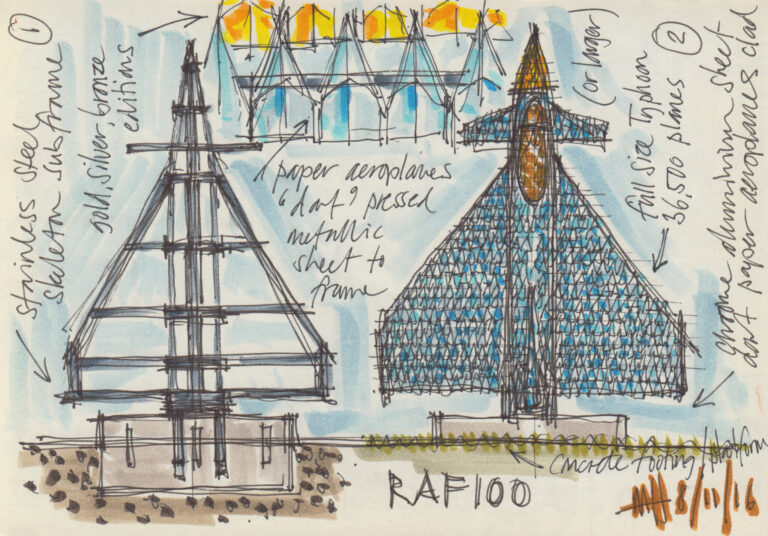 1
stainless steel
skeleton subframe
gold, silver, bronze
editions
paper aeroplanes
"dart" pressed
metallic
sheet to
frame
(or larger)
2
full size Typhoon
36,500 planes
chrome aluminium sheet
dart paper aeroplanes clad
concrete footing / platform
RAF100
8/11/16